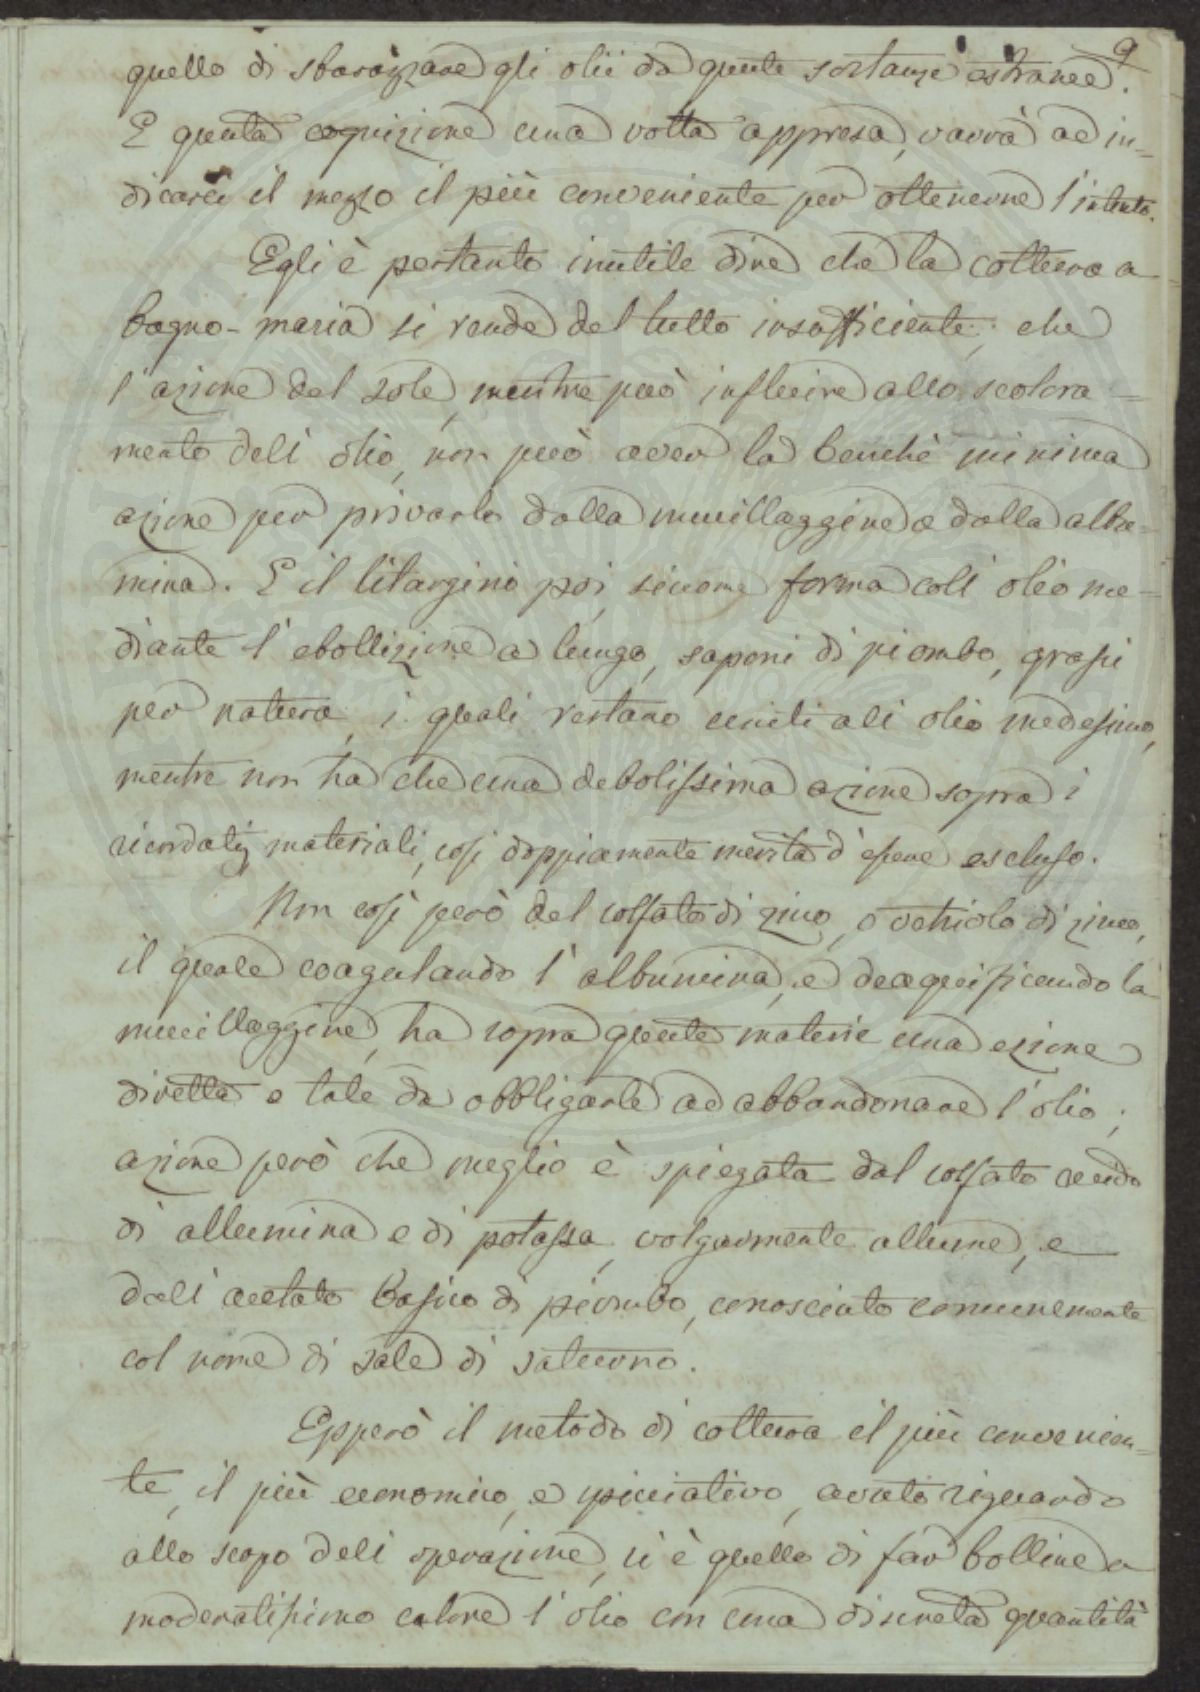 9
quello di sbarazzare gli olii da queste sostanze estranee.
E questa cognizione una volta appresa, varrà ad in=
dicarci il mezzo il più conveniente per ottenerne l'intento.
Egli è pertanto inutile dire che la cottura a
bagno-maria si rende del tutto insufficiente; che
l'azione del sole, mentre può influire allo scolora=
mento dell'olio, non può aver la benchè minima
azione per privarlo dalla mucillaggine e dalla albu=
mina. E il litargirio poi, siccome forma coll'olio me=
diante l'ebollizione a lungo, saponi di piombo, grassi
per natura, i quali restano uniti all'olio medesimo,
mentre non ha che una debolissima azione sopra i
ricordati materiali, così doppiamente merita d'essere escluso.
Non così però del solfato di zinco, o vetriolo di zinco,
il quale coagulando l'albumina, e deacquificando la
mucillaggine, ha sopra queste materie una azione
diretta e tale da obbligarle ad abbandonare l'olio;
azione però che meglio è spiegata dal solfato acido
di allumina e di potassa, volgarmente allume, e
dall'acetato basico di piombo, conosciuto comunemente
col nome di sale di saturno.
Epperò il metodo di cottura il più convenien=
te, il più economico, e spicciativo, avuto riguardo
allo scopo dell'operazione, si è quello di far bollire a
moderatissimo calore l'olio con una discreta quantità